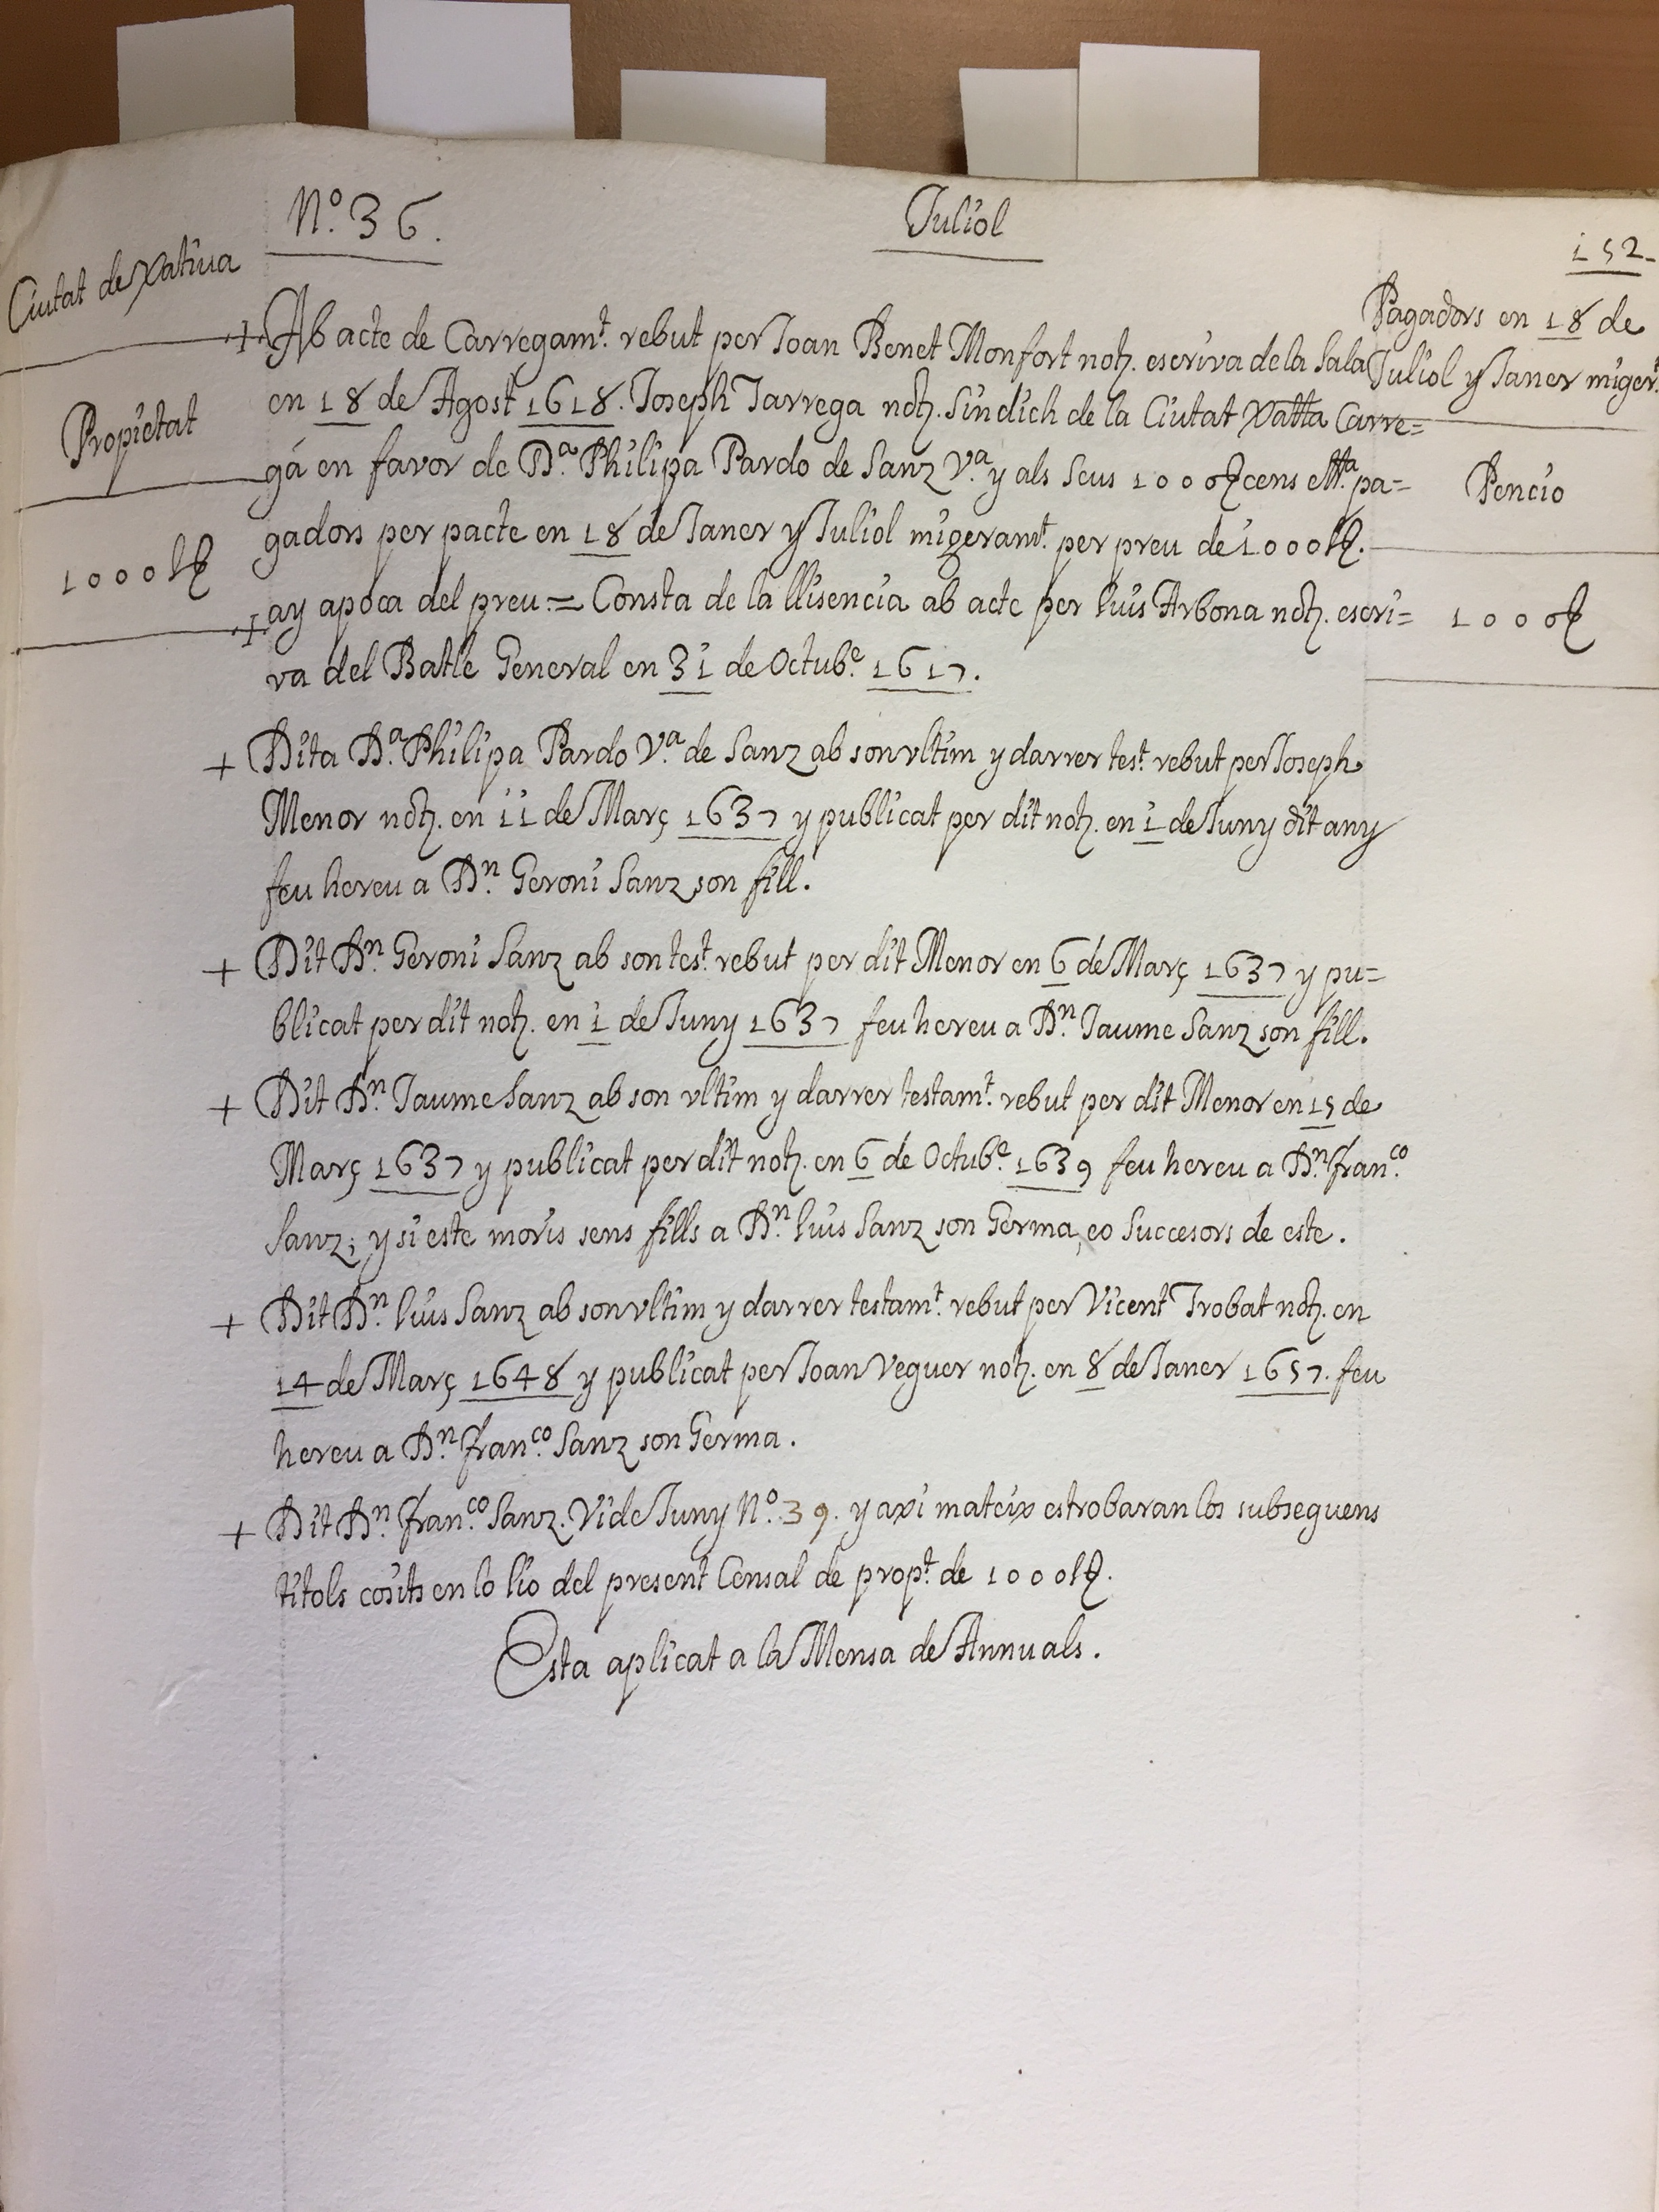 Nº. 36.
Juliol
152.
Ciutat de Xativa
Propietat
1000 ll
Pagadors en 18 de
Juliol y Janer migert.
Pencio
1000 s
+ Ab acte de Carregamt. rebut per Joan Benet Monfort noth. escriva de la Sala
en 18 de Agost 1618. Joseph Tarrega noth. Sindich de la Ciutat Xatta Carre=
gá en favor de Dª. Philipa Pardo de Sanz Vª. y als seus 1000 s cens ettª. pa=
gadors per pacte en 18 de Janer y Juliol migeramt. per preu de 1000 ll.
+ ay apoca del preu.= Consta de la llisencia ab acte per Luis Arbona noth. escri=
va del Batle General en 31 de Octube. 1617.
+ Dita Dª. Philipa Pardo Vª. de Sanz ab son vltim y darrer test. rebut per Joseph
Menor noth. en 11 de Març 1637 y publicat per dit noth. en 1 de Juny dit any
feu hereu a Dn. Geroni Sanz son fill.
+ Dit Dn. Geroni Sanz ab son test. rebut per dit Menor en 6 de Març 1637 y pu=
blicat per dit noth. en 1 de Juny 1637 feu hereu a Dn. Jaume Sanz son fill.
+ Dit Dn. Jaume Sanz ab son vltim y darrer testamt. rebut per dit Menor en 15 de
Març 1637 y publicat per dit noth. en 6 de Octube. 1639 feu hereu a Dn. franco.
Sanz; y si este moris sens fills a Dn. Luis Sanz son Germa, eo Succesors de este.
+ Dit Dn. Luis Sanz ab son vltim y darrer testamt. rebut per Vicent Trobat noth. en
14 de Març 1648 y publicat per Joan Veguer noth. en 8 de Janer 1657. feu
hereu a Dn. franco. Sanz son Germa.
+ Dit Dn. franco. Sanz. Vide Juny Nº. 39. y axi mateix estrobaran los subseguens
titols cosits en lo lio del present Censal de propt. de 1000 ll.
Esta aplicat a la Mensa de Annuals.